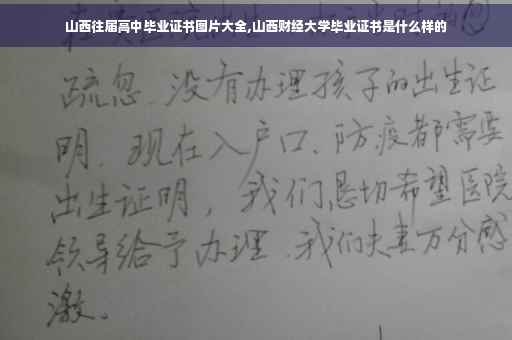 山西往届高中毕业证书图片大全,山西财经大学毕业证书是什么样的
疏忽、没有办理孩子的出生证
明、现在入户口、防疫都需要
出生证明，我们恳切希望医院
领导给予办理、我们夫妻万分感
激。